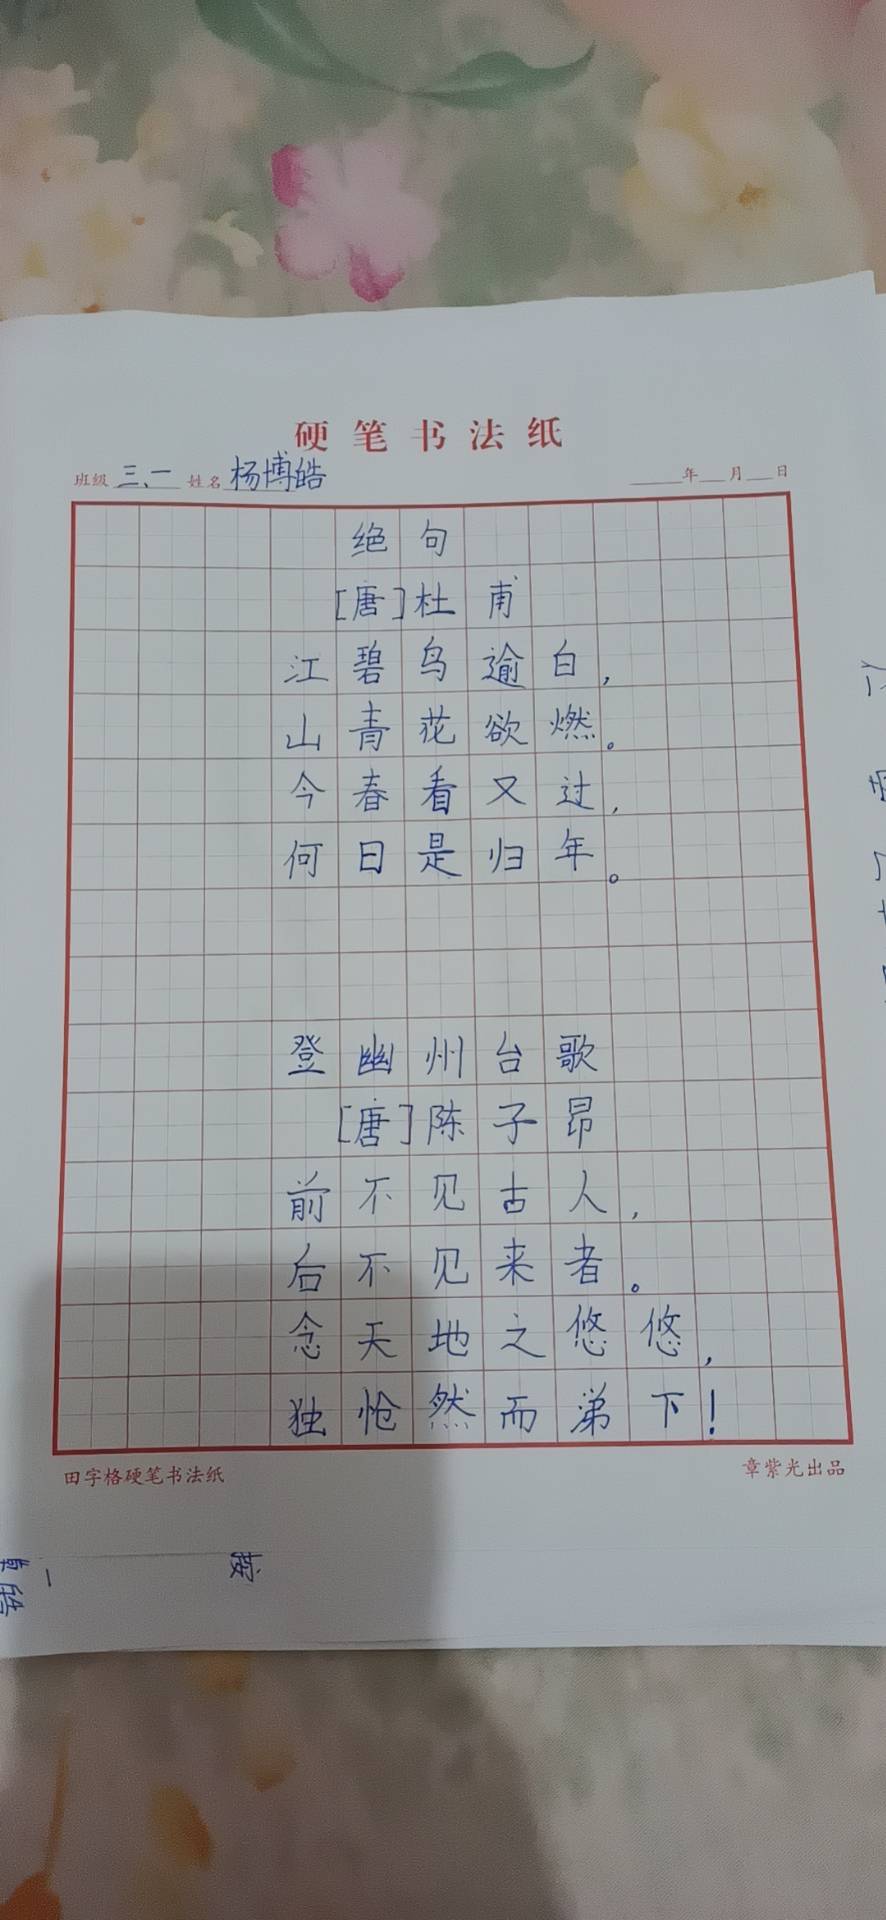 硬笔书法纸
班级 三、一 姓名 杨博皓 年 月 日
绝句
[唐]杜甫
江碧鸟逾白，
山青花欲燃。
今春看又过，
何日是归年。
登幽州台歌
[唐]陈子昂
前不见古人，
后不见来者。
念天地之悠悠，
独怆然而涕下！
田字格硬笔书法纸 章紫光出品